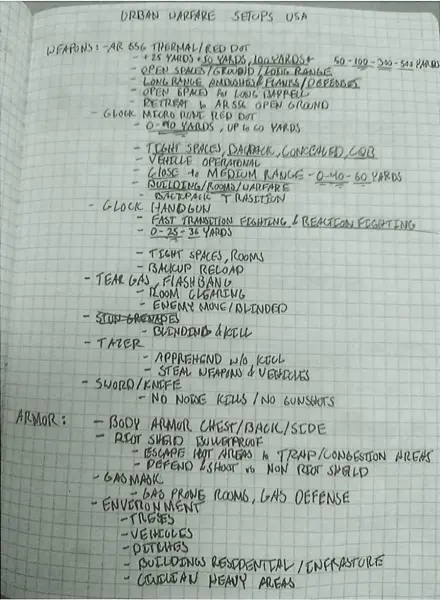 URBAN WARFARE SETUPS USA
WEAPONS: - AR 556 THERMAL/RED DOT
- +25 YARDS + 50 YARDS, 100 YARDS + 50-100-300-500 YARDS
- OPEN SPACES/GROUND/LONG RANGE
- LONG RANGE AMBUSHES & FLANKS/DEFENSES
- OPEN SPACES FOR LONG BARRELL
- RETREAT to AR556 OPEN GROUND
- GLOCK MICRO RONI RED DOT
- 0-40 YARDS, UP to 60 YARDS
- TIGHT SPACES, BACKPACK, CONCEALED, CQB
- VEHICLE OPERATIONAL
- CLOSE to MEDIUM RANGE - 0-40-60 YARDS
- BUILDING/ROOMS/WARFARE
- BACKPACK TRASITION
- GLOCK HANDGUN
- FAST TRANSITION FIGHTING & REACTION FIGHTING
- 0-25-36 YARDS
- TIGHT SPACES, ROOMS
- BACKUP RELOAD
- TEAR GAS, FLASHBANG
- ROOM CLEARING
- ENEMY MOVE/BLINDED
- STUN GRENADES
- BLINDING & KILL
- TAZER
- APPREHEND W/O KILL
- STEAL WEAPONS & VEHICLES
- SWORD/KNIFE
- NO NOISE KILLS/NO GUNSHOTS
ARMOR: - BODY ARMOR CHEST/BACK/SIDE
- RIOT SHEILD BULLETPROOF
- ESCAPE HOT AREAS to TRAP/CONGESTION AREAS
- DEFEND & SHOOT vs NON RIOT SHEILD
- GAS MASK
- GAS PRONE ROOMS, GAS DEFENSE
- ENVIRONMENT
- TREES
- VEHICLES
- DITCHES
- BUILDINGS RESIDENTIAL/INFRASTURE
- CIVILIAN HEAVY AREAS